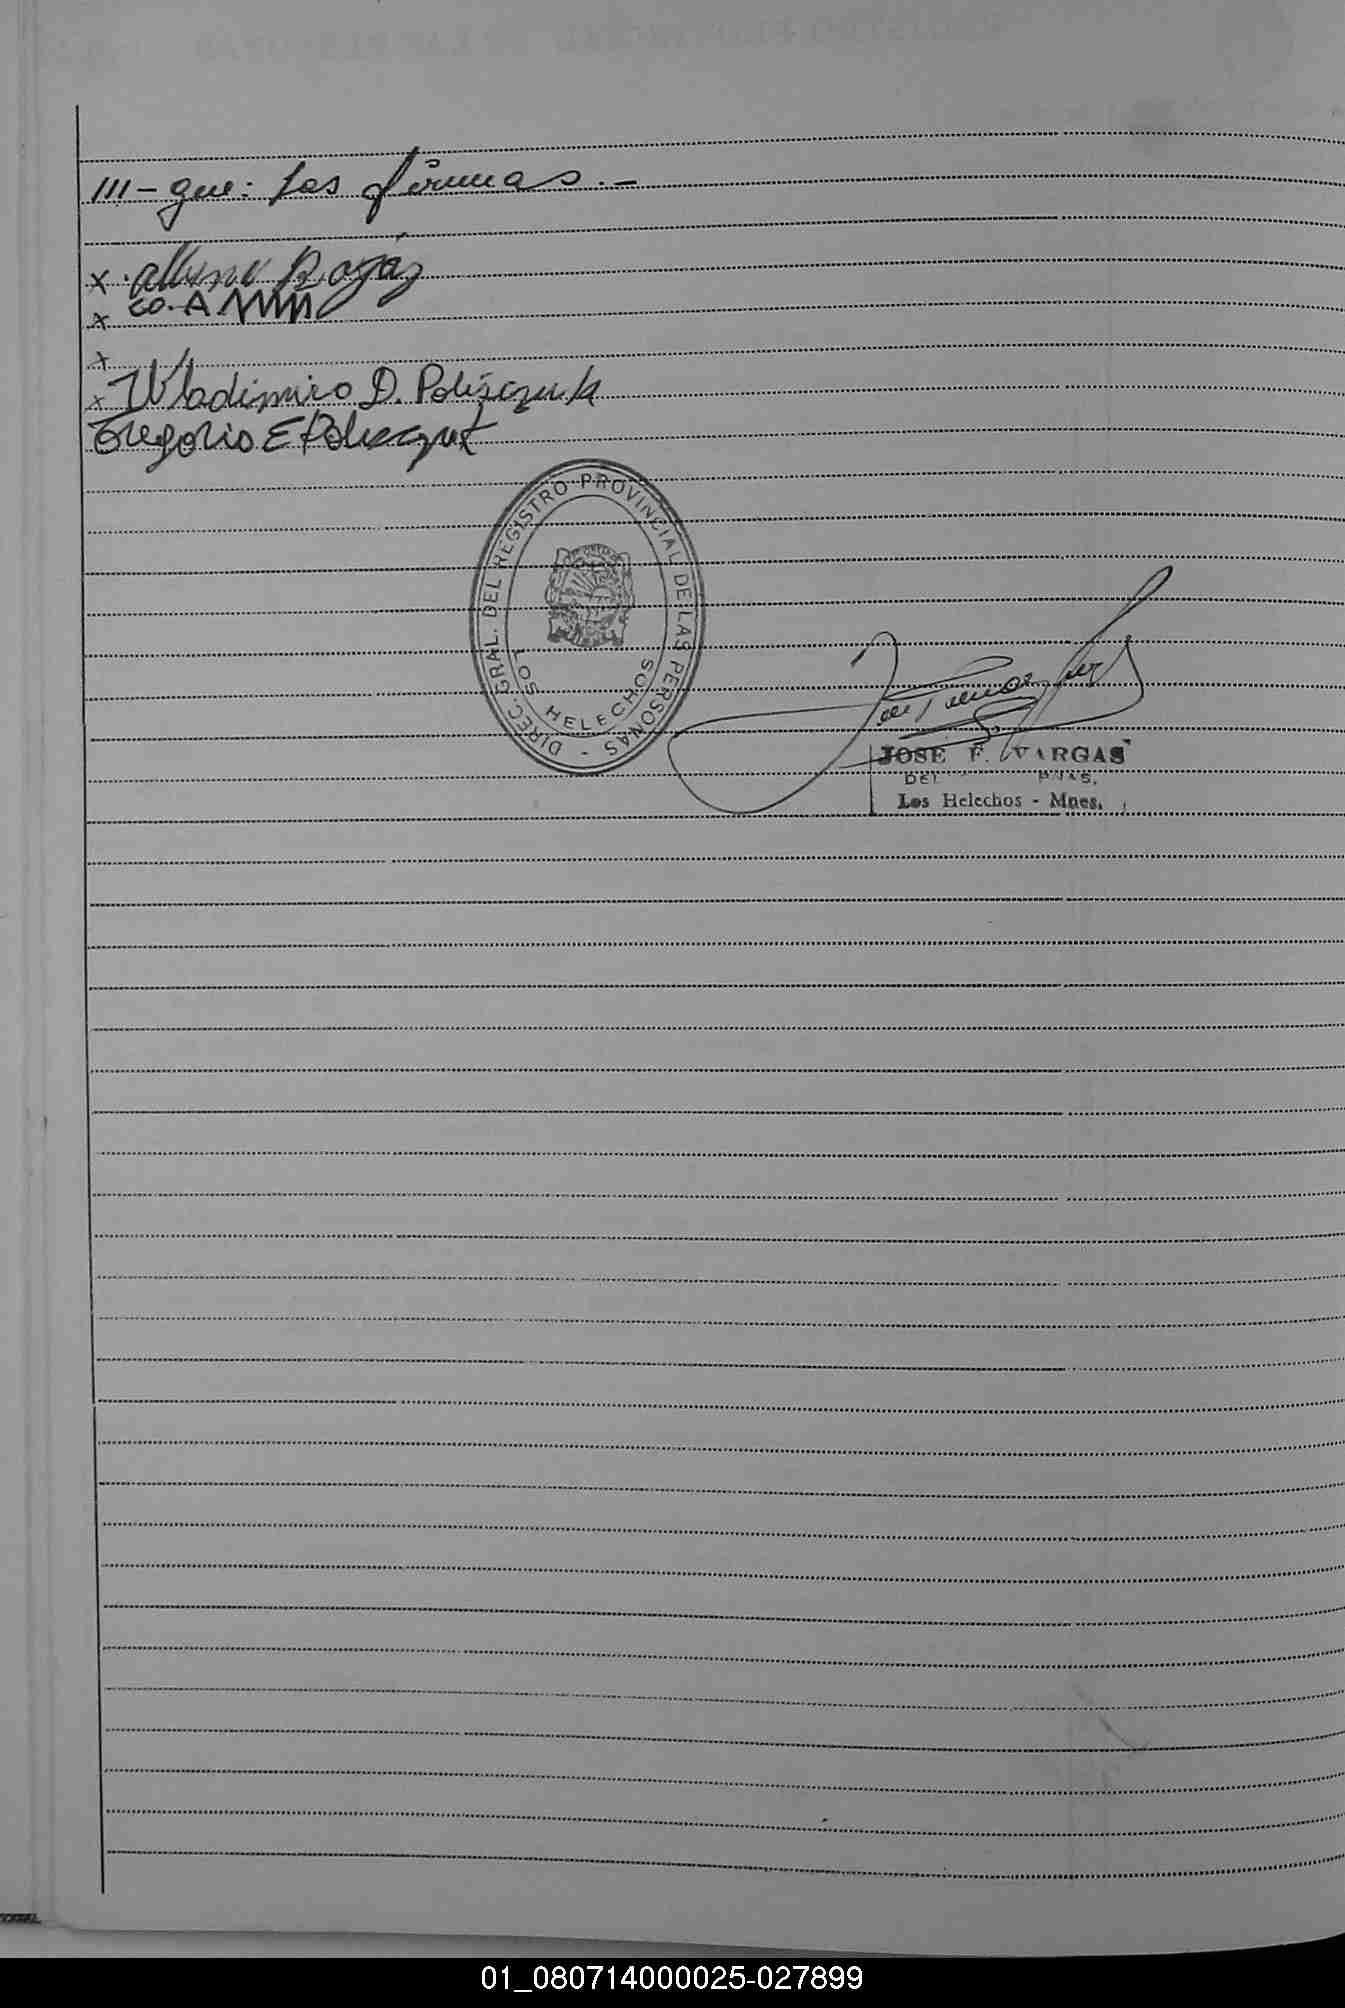 III - que: las firmas. -
x
x
x
x Wladimiro D. Polisczuk
Gregorio E Polisczuk
DIREC. GRAL. DEL REGISTRO PROVINCIAL DE LAS PERSONAS -
LOS HELECHOS
JOSE F. VARGAS
DEL
Los Helechos - Mnes.
01_080714000025-027899